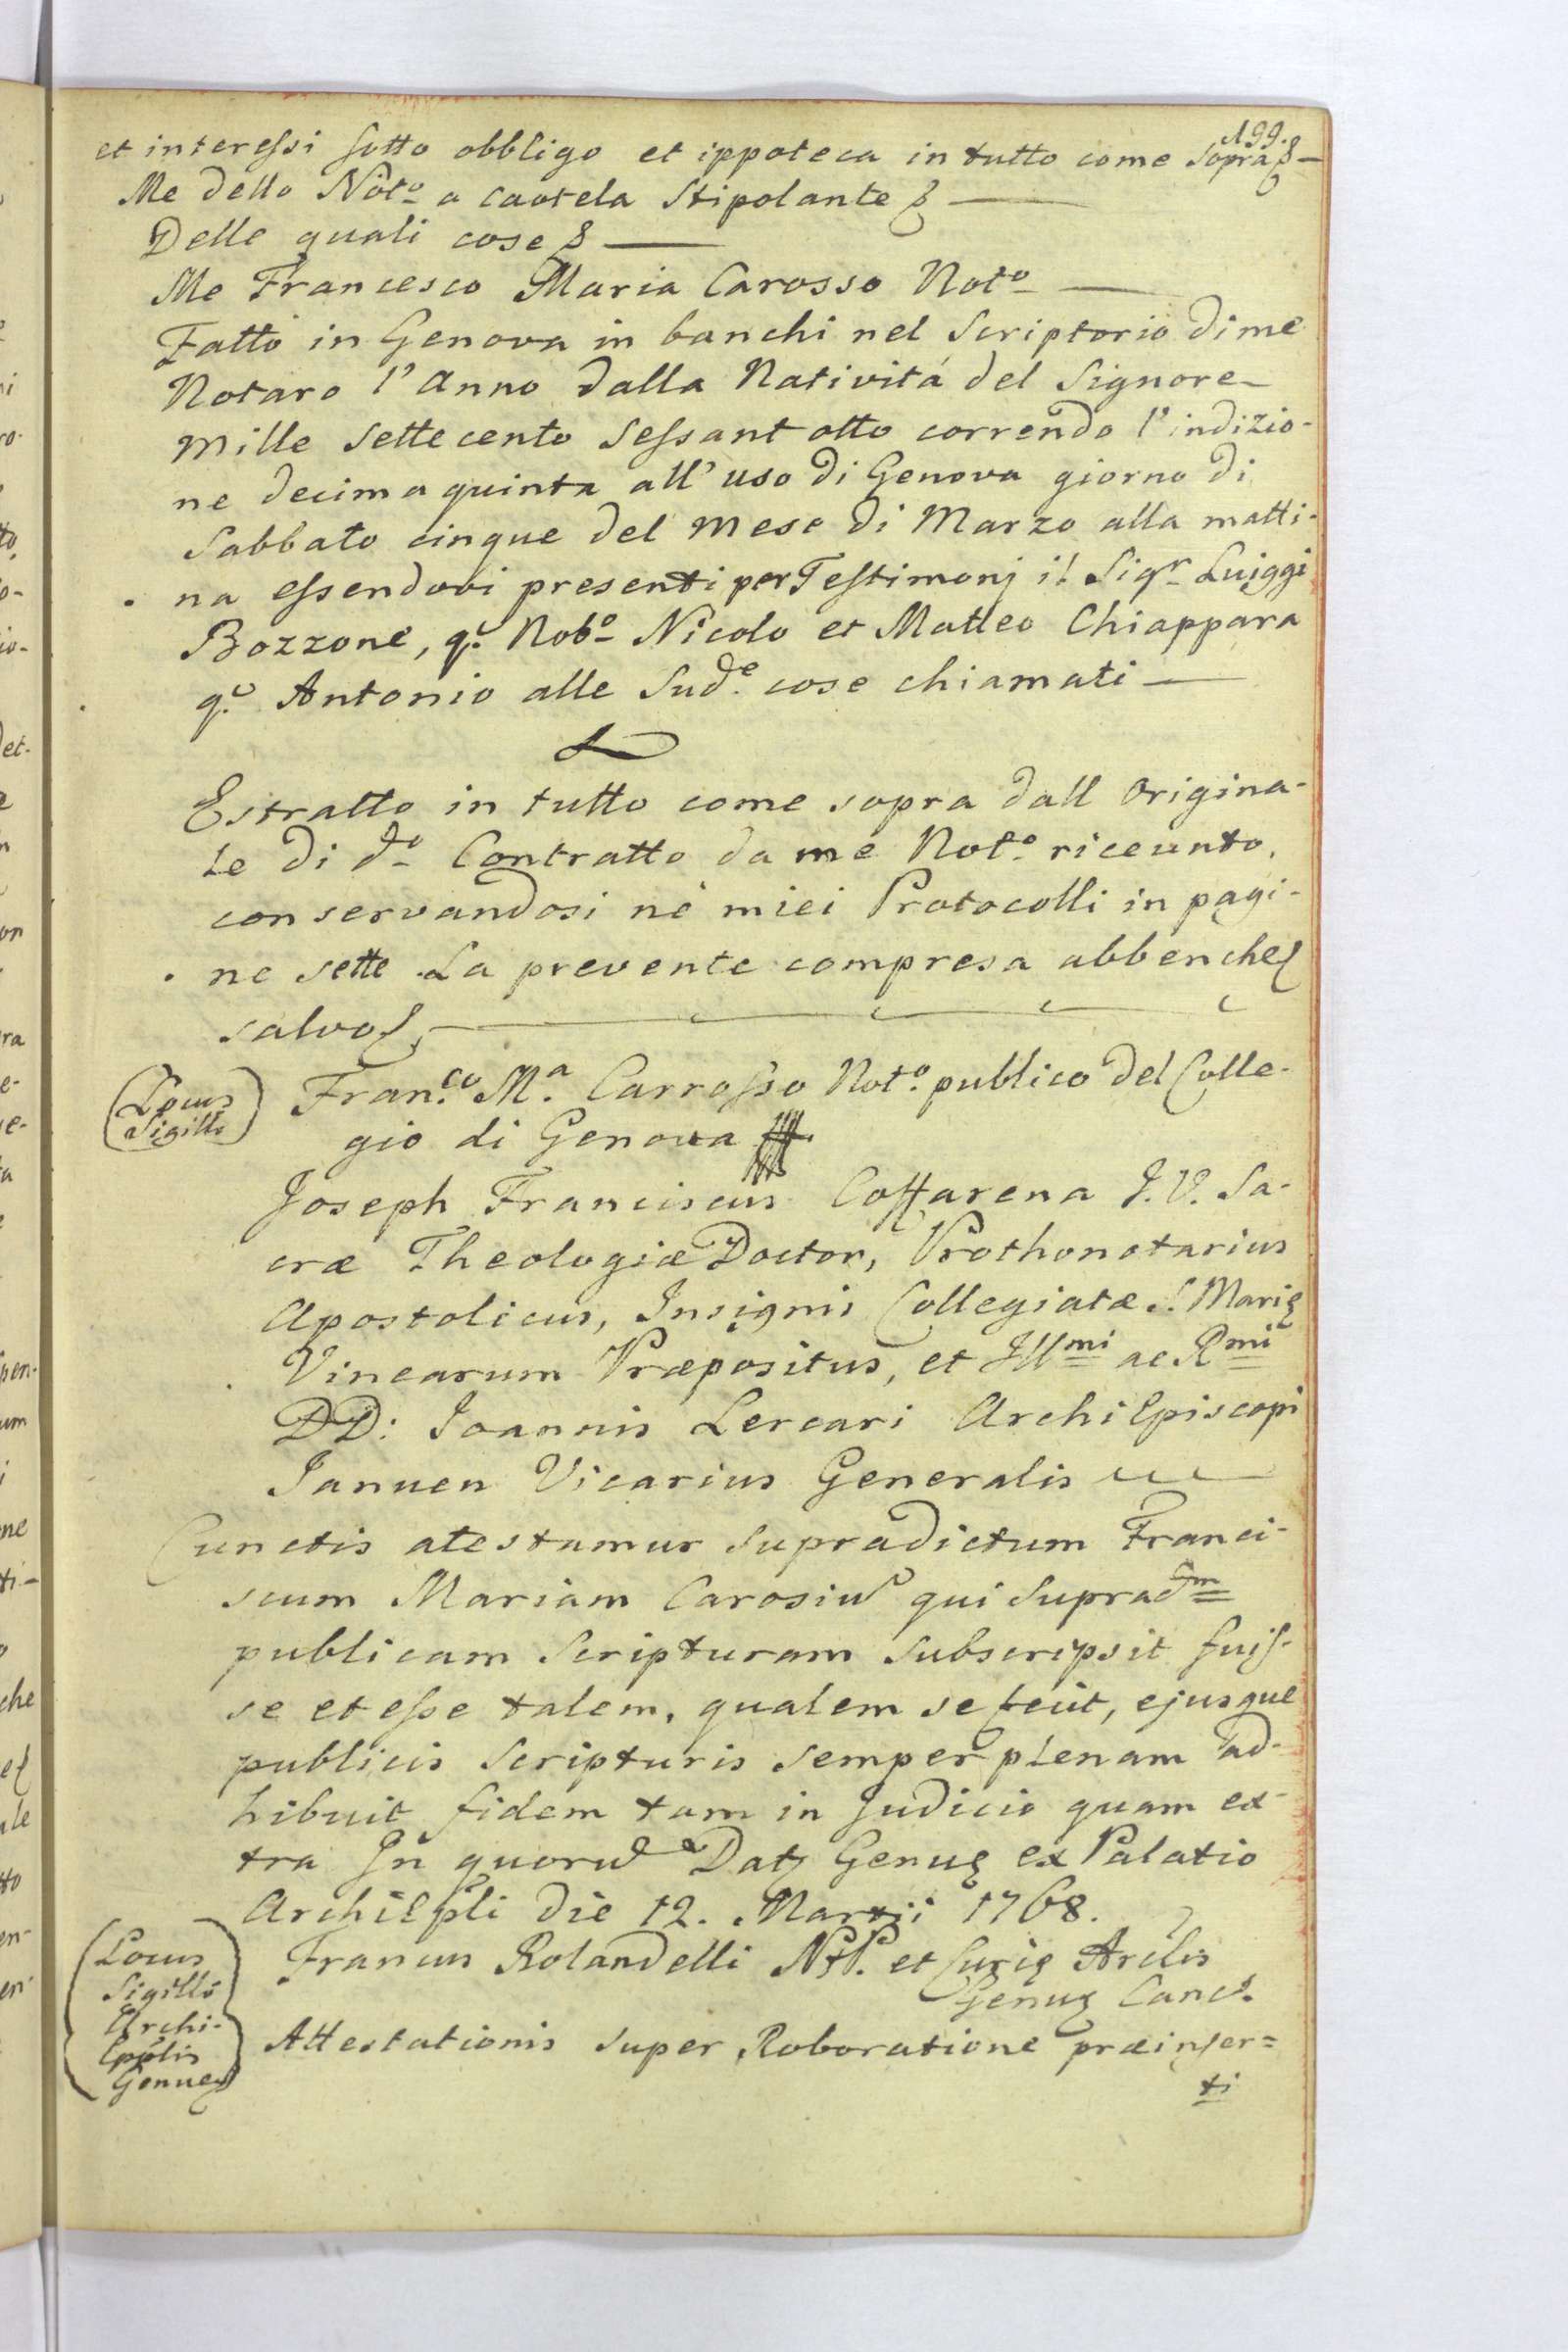 199.
et interessi sotto obbligo et ippoteca in tutto come sopra &
Me dello Noto a cautela Stipolante &
Delle quali cose &
Me Francesco Maria Carosso Noto
Fatto in Genova in banchi nel Scriptorio di me
Notaro l'Anno dalla Nativitá del Signore
Mille Sette cento Sessant otto correndo l'indizio-
ne decima quinta all'uso di Genova giorno di
Sabbato cinque del mese di Marzo alla matti-
na essendovi presenti per Testimonj il Sigr Luiggi
Bozzone, q. Nobo Nicolo et Matteo Chiappara
q. Antonio alle Sude. cose chiamati
Estratto in tutto come sopra dall Origina-
le di do Contratto da me Noto. riceunto,
conservandosi né miei Protocolli in pagi-
ne sette La prevente compresa abbenche
salvo
(Locus
Sigilli)
Fran.co M.a Carrosso Noto. publico del Colle-
gio di Genova
Joseph Franciscus Cossarena J. V. Sa-
cræ Theologiæ Doctor, Prothonotarius
Apostolicus, Insignis Collegiatæ S. Marię
Vinearum Præpositus, et Illmi ac Rmi
DD: Joannis Lercari Archiepiscopi
Januen Vicarius Generalis
Cunctis atestamur supradictum Franci-
scum Mariam Carosiu qui supradm
publicam Scripturam subscripsit fuis-
se et esse talem, qualem se fecit, ejusque
publicis Scripturis semper plenam ad-
hibuit fidem tam in Judicio quam ex-
tra In quoru Dat Genuę ex Palatio
Archiepli die 12. Martii 1768.
(Locus
Sigilli
Archi-
Epplis
Genue)
Francus Rolandelli et Curię Arclis
Genuę Canc.
Attestationis super Roboratione præinser=
ti